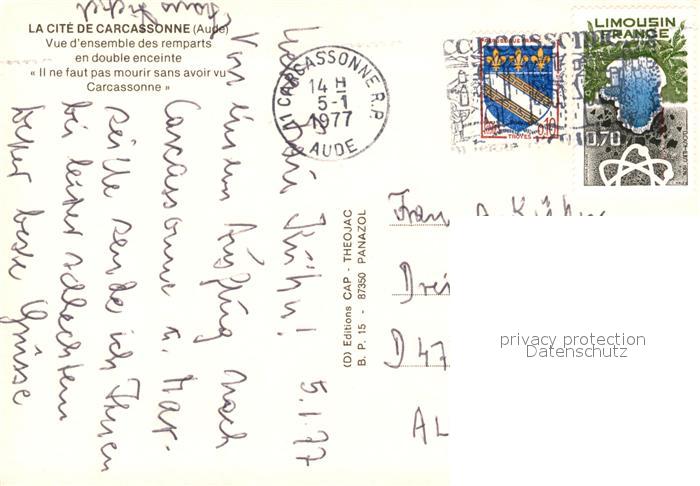 LA CITÉ DE CARCASSONNE (Aude)
Vue d'ensemble des remparts
en double enceinte
« Il ne faut pas mourir sans avoir vu
Carcassonne »
11 CARCASSONNE R.P.
14 H
5-1
1977
AUDE
carcassonne
TROYES
0,10
LIMOUSIN
FRANCE
0,70
(D) Editions CAP - THEOJAC
B. P. 15 - 87350 PANAZOL
5.1.77
Kühn!
Von einem Ausflug nach
Carcassonne u. Mar-
seille sende ich Ihnen
bei leider schlechtem
Wetter beste Grüsse
Frau
Kühn
Drei
D 47
AL
privacy protection
Datenschutz